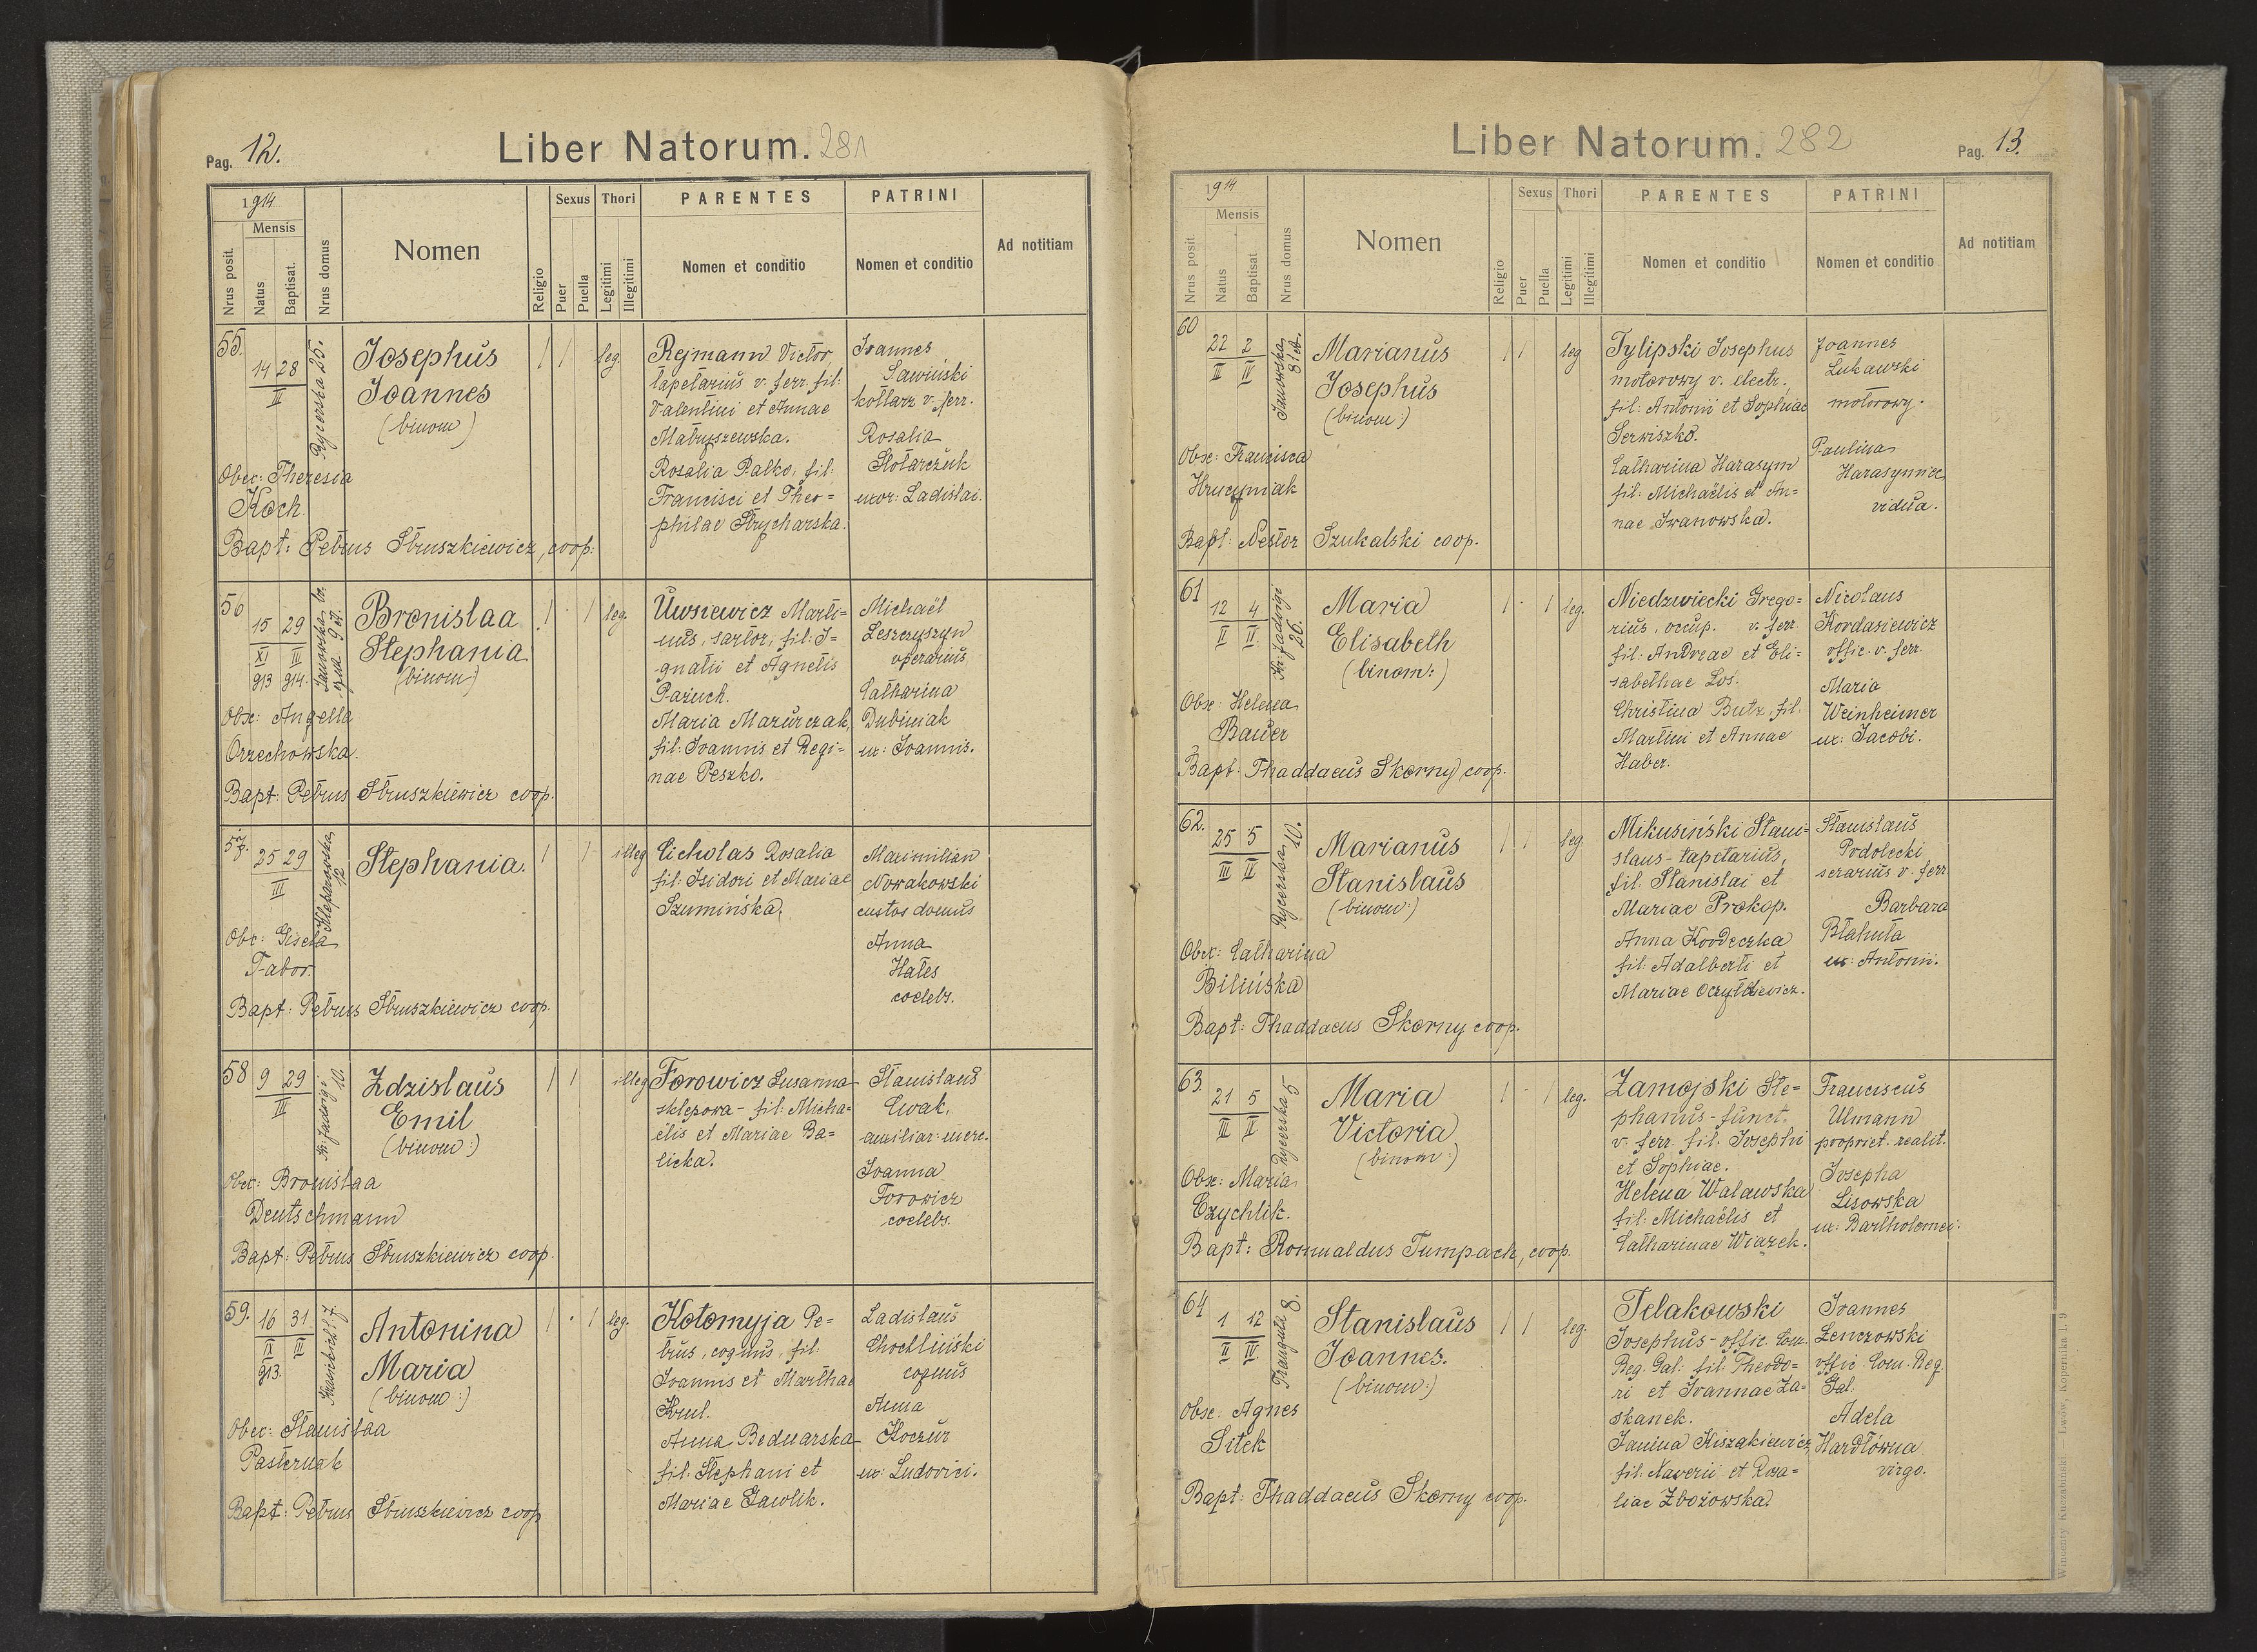 Pag. 12.
Liber Natorum. 281
1914
Mensis
Nrus posit.
Natus
Baptisat.
Nrus domus
Nomen
Religio
Sexus
Puer
Puella
Thori
Legitimi
Illegitimi
PARENTES
Nomen et conditio
PATRINI
Nomen et conditio
Ad notitiam
55.
14 28
II
Rycerska 25.
Josephus
Joannes
(binom)
1 1 leg.
Obec: Theresia
Koch.
Bapt: Petrus Struszkiewicz, coop:
Rejmann Victor,
tapetarius v. ferr. fil:
Valentini et Annae
Matuszewska.
Rosalia Palko, fil:
Francisci et Theo=
philae Strycharska.
Joannes
Sawiński
kotlarz v. ferr.
Rosalia
Stolarczuk
uxor: Ladislai.
56
15 29
XI III
913 914.
Bronislaa
Stephania
(binom)
1 · 1 leg.
Obse: Angella
Orzechowska.
Bapt: Petrus Struszkiewicz coop.
Uwsiewicz Marti=
nus, sartor, fil: I=
gnatii et Agnetis
Pazuch.
Maria Mazurczak,
fil: Joannis et Regi=
nae Peszko.
Michaël
Leszczyszyn
operarius
Catharina
Dubiniak
ux: Joannis.
57.
25 29
III
Kleparowska
12
Stephania.
1 1 illeg
Obe: Gisela
Tabor.
Bapt: Petrus Struszkiewicz coop.
Cicholas Rosalia
fil: Isidori et Mariae
Szumińska.
Maximilian
Nowakowski
custos domus
Anna
Hates
coelebs.
58
9 29
III
Kr. Jadwigi
10.
Zdzislaus
Emil
(binom:)
1 1 illeg
Obec: Bronislaa
Deutschmann
Bapt: Petrus Struszkiewicz coop.
Forowicz Susanna
sklepowa - fil: Micha=
ëlis et Mariae Ba=
licka.
Stanislaus
Cwak,
auxiliar: merc.
Joanna
Forowicz
coelebs.
59.
16 31
IX III
913.
Antonina
Maria
(binom:)
1 · 1 leg.
Obec: Stanislaa
Pasternak
Bapt: Petrus Struszkiewicz coop
Kołomyja Pe=
trus, coquus, fil:
Joannis et Marthae
Krul.
Anna Bednarska
fil: Stephani et
Mariae Gawlik.
Ladislaus
Chochliński
coquus
Anna
Koczur
ux: Ludovici.
Liber Natorum. 282
Pag. 13.
1914
Mensis
Nrus posit.
Natus
Baptisat.
Nrus domus
Nomen
Religio
Sexus
Puer
Puella
Thori
Legitimi
Illegitimi
PARENTES
Nomen et conditio
PATRINI
Nomen et conditio
Ad notitiam
60
22 2
III IV
Janowska
Marianus
Josephus
(binom:)
1 1 leg
Obse: Francisca
Hruczyniak
Bapt: Nestor Szukalski coop.
Tylipski Josephus
motorowy v. electr.,
fil: Antonii et Sophiae
Serwiszko.
Catharina Harasym
fil: Michaëlis et An=
nae Iwanowska.
Joannes
Łukawski
motorowy.
Paulina
Harasymiec
vidua.
61
12 4
II II
Kr. Jadwigi
26.
Maria
Elisabeth
(binom:)
1 · 1 leg.
Obse: Helena
Bauer
Bapt: Thaddaeus Skorny, coop.
Niedzwiecki Grego=
rius, occup. v. ferr.
fil: Andreae et Eli=
sabethae Los.
Christina Butz, fil.
Martini et Annae
Haber.
Nicolaus
Kordasiewicz
offic. v. ferr.
Maria
Weinheimer
ux: Jacobi.
62.
25 5
III IV
Rycerska
10.
Marianus
Stanislaus
(binom:)
1 1 leg.
Obst: Catharina
Bilińska
Bapt: Thaddaeus Skorny coop.
Mikusiński Stani=
slaus - tapetarius,
fil. Stanislai et
Mariae Prokop.
Anna Kordeczka
fil: Adalberti et
Mariae
Stanislaus
Podolecki
serarius v. ferr.
Barbara
Błahuta
ux: Antonii.
63.
21 5
III II
Rycerska 5
Maria
Victoria
(binom:)
1 · 1 leg.
Obse: Maria
Czychlik.
Bapt: Romualdus Tumpach, coop.
Zamojski Ste=
phanus - funct.
v. ferr. fil. Josephi
et Sophiae.
Helena Walawska
fil: Michaëlis et
Catharinae Wiązek.
Franciscus
Ulmann
propriet. realit.
Josepha
Lisowska
ux: Bartholomei.
64
1 12
II IV
Traugutta 8.
Stanislaus
Joannes.
(binom:)
1 1 leg.
Obse: Agnes
Sitek
Bapt: Thaddaeus Skorny coop.
Telakowski
Josephus - offic. Com.
Reg. Gal: fil: Theodo=
ri et Joannae Za=
skanek.
Janina Kiszakiewicz
fil: Xaverii et Rosa=
liae Zbożowska.
Joannes
Lenczowski
offic. Com. Reg.
Gal:
Adela
Hardtówna
virgo.
Wincenty Kuczabiński, Lwów, Kopernika l. 9